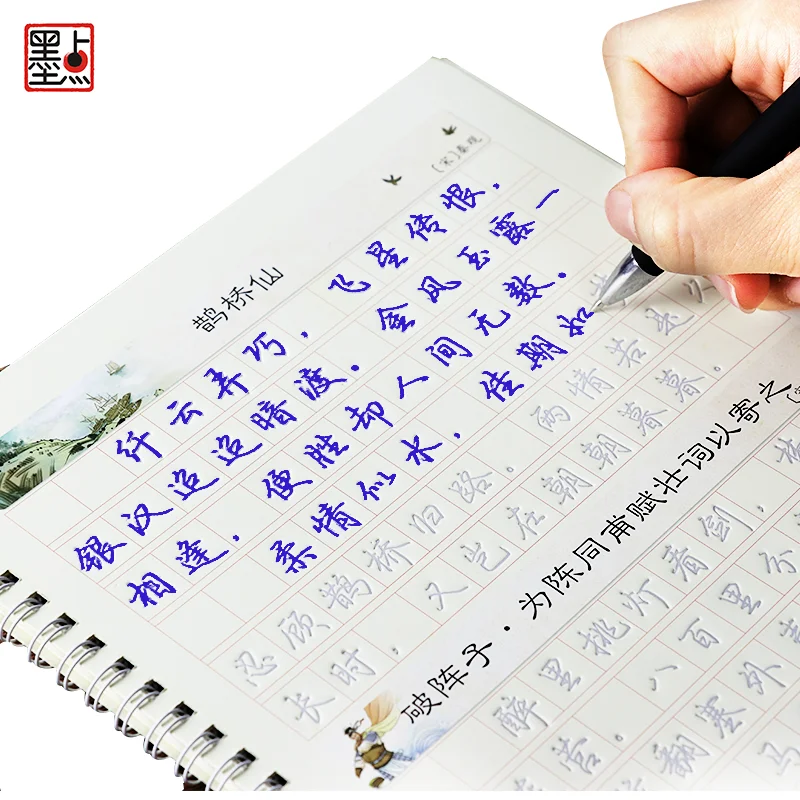 墨点
〔宋〕秦观
鹊桥仙
纤云弄巧,飞星传恨,
银汉迢迢暗渡。金风玉露一
相逢,便胜却人间无数。
柔情似水,佳期如
忍顾鹊桥归路。两情若是久
长时,又岂在朝朝暮暮。
破阵子·为陈同甫赋壮词以寄之
醉里挑灯看剑,
八百里分
翻塞外